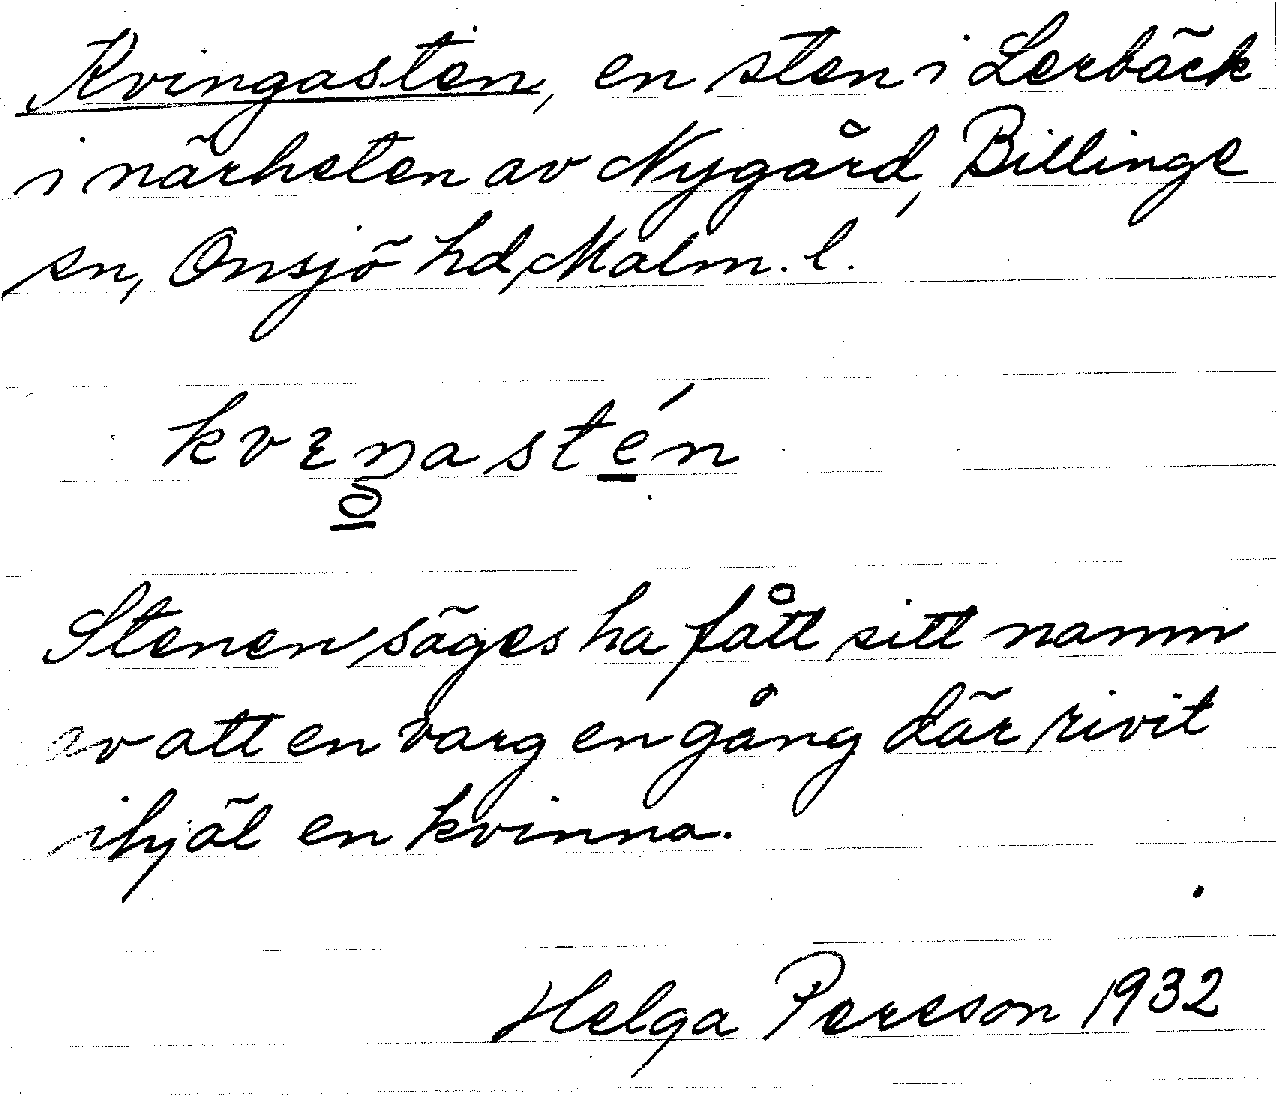 Kvingasten, en sten i Lerbäck
i närheten av Nygård, Billinge
sn, Onsjö hd, Malm. l.
kvɛŋastén
Stenen säges ha fått sitt namn
av att en varg en gång där rivit
ihjäl en kvinna.
Helga Persson 1932